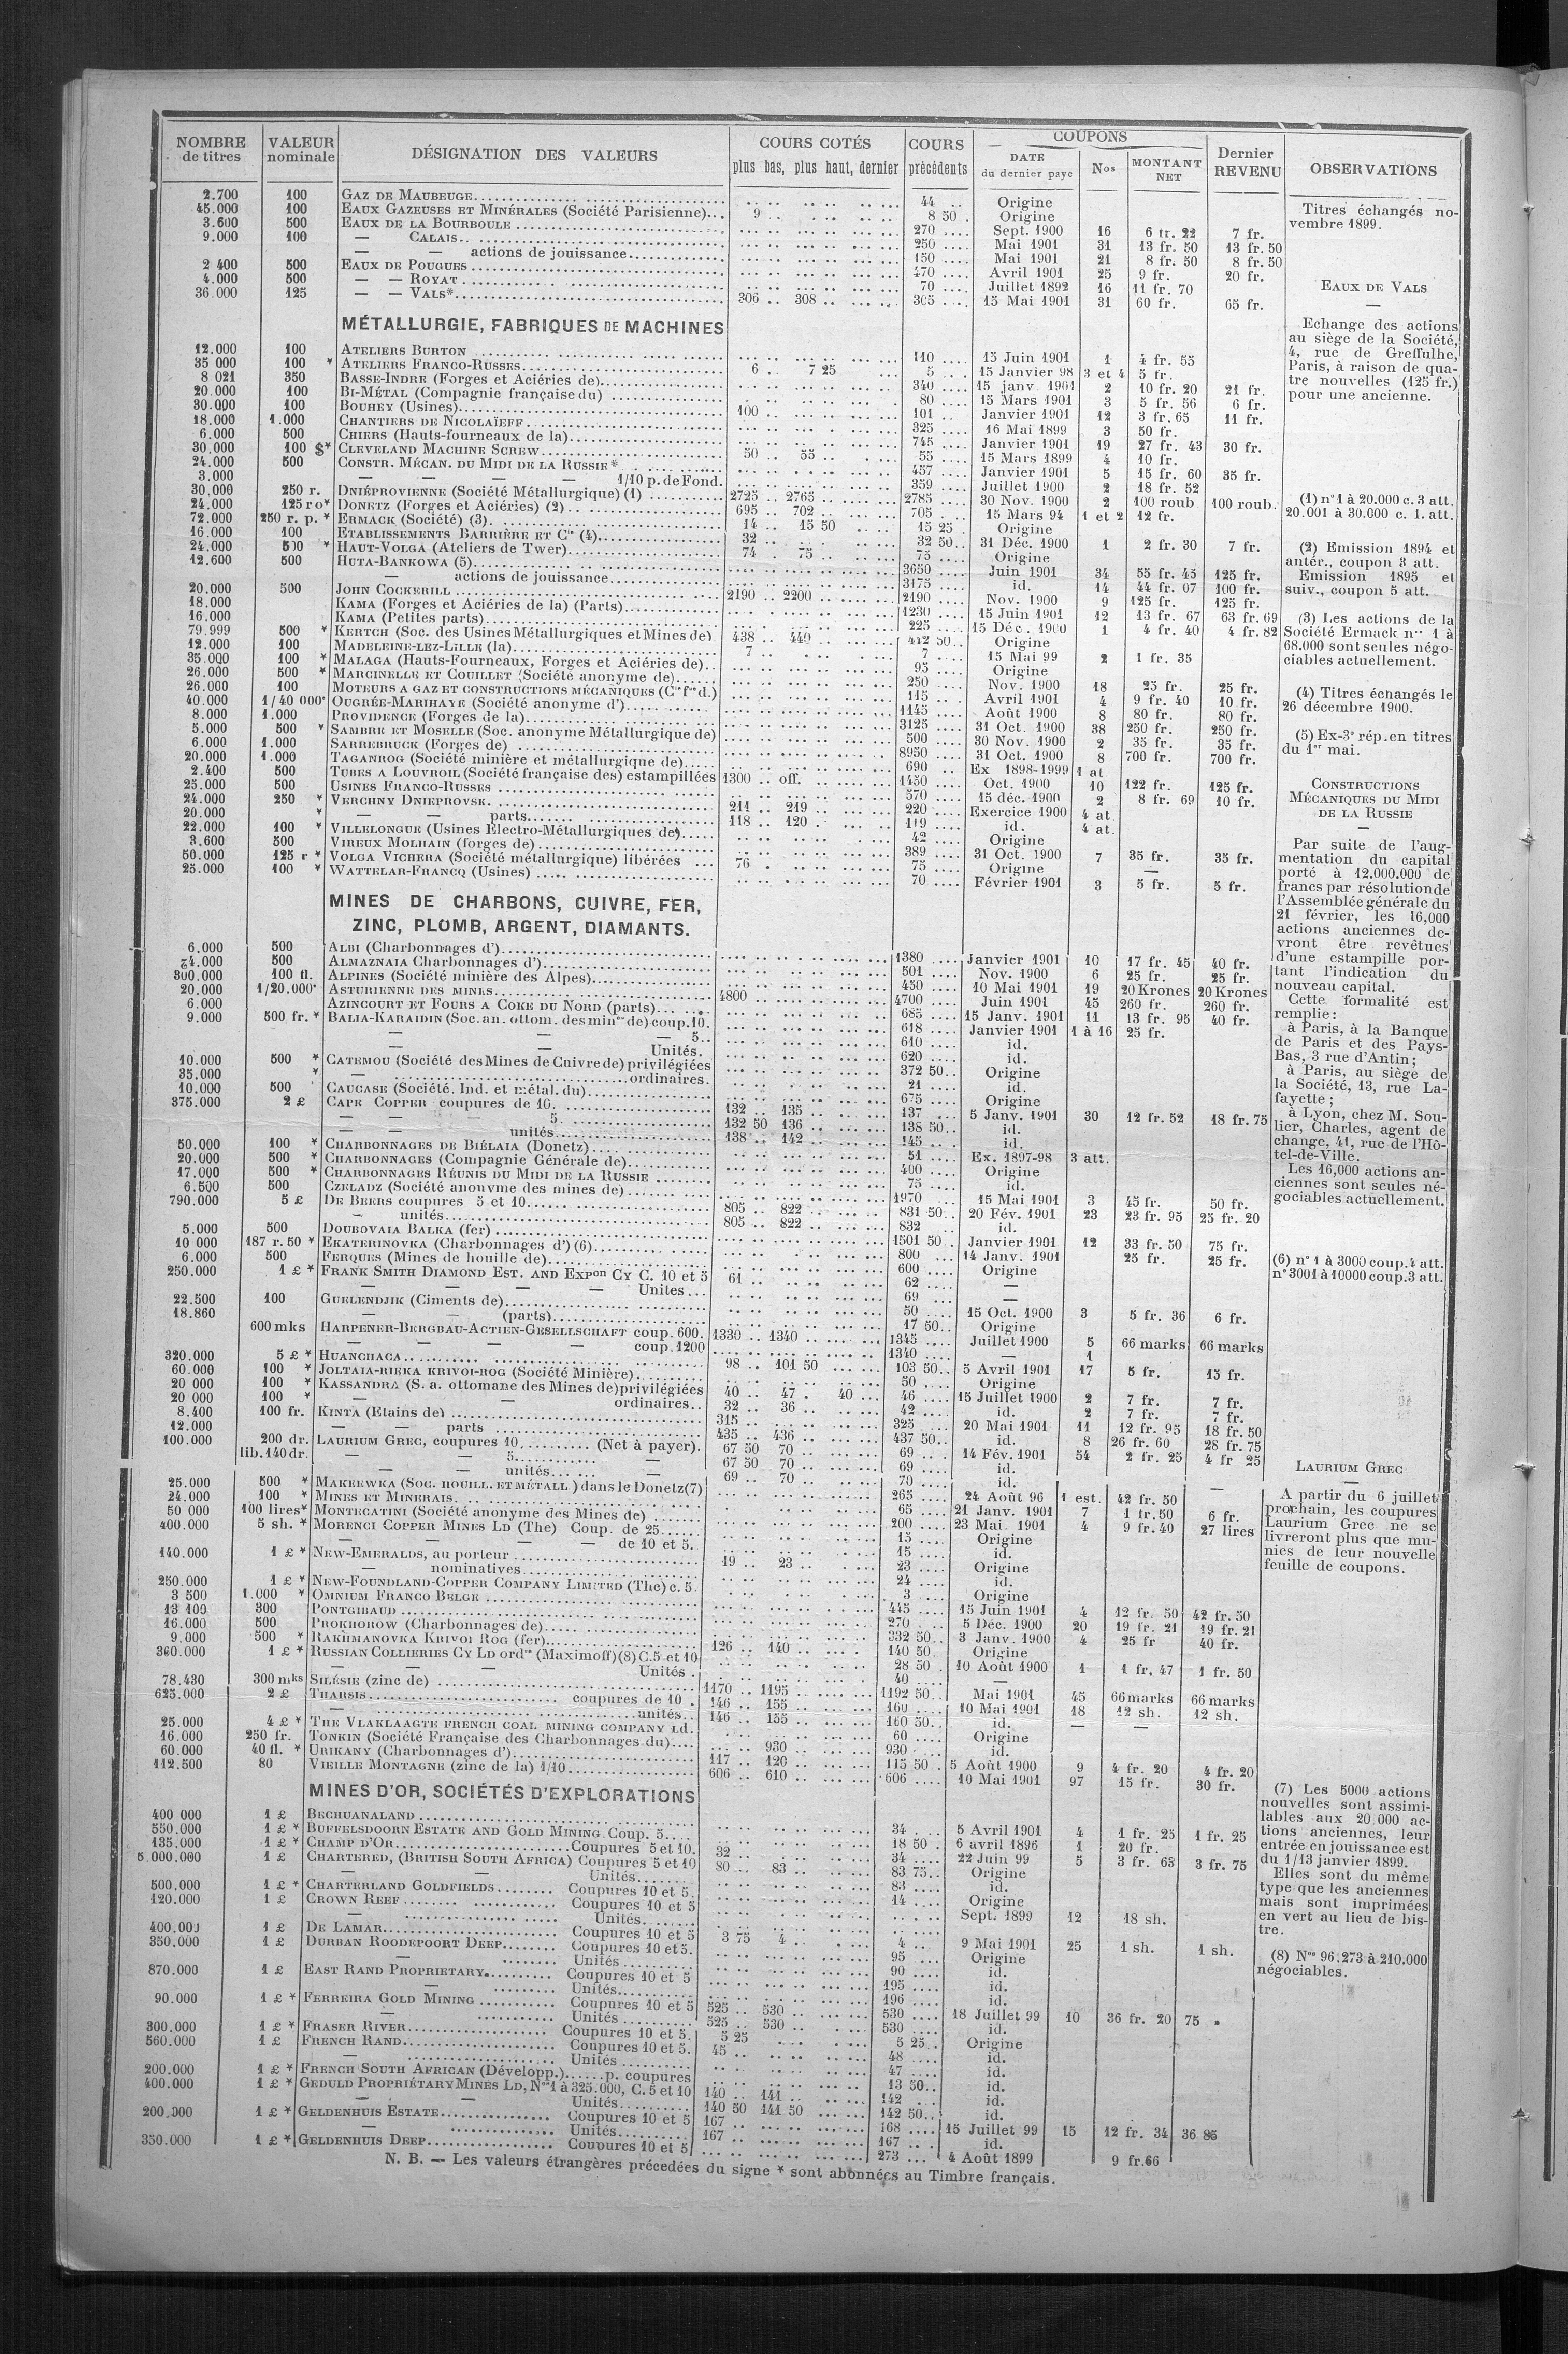 NOMBRE de titres | VALEUR nominale | DÉSIGNATION DES VALEURS | COURS COTÉS plus bas, plus haut, dernier | COURS précédents | COUPONS DATE du dernier paye | Nos | MONTANT NET | Dernier REVENU | OBSERVATIONS
2.700 100 GAZ DE MAUBEUGE 44 Origine
45.000 100 EAUX GAZEUSES ET MINÉRALES (Société Parisienne) 9 8 50 Origine
3.600 500 EAUX DE LA BOURBOULE 270 Sept. 1900 16 6 fr. 22 7 fr.
9.000 100 — CALAIS 250 Mai 1901 31 13 fr. 50 13 fr. 50
— — actions de jouissance 150 Mai 1901 21 8 fr. 50 8 fr. 50
2 400 500 EAUX DE POUGUES 470 Avril 1901 25 9 fr. 20 fr.
4.000 500 — — ROYAT 70 Juillet 1892 16 11 fr. 70
36.000 125 — — VALS* 306 308 305 15 Mai 1901 31 60 fr. 65 fr.
MÉTALLURGIE, FABRIQUES DE MACHINES
12.000 100 ATELIERS BURTON 110 15 Juin 1901 1 4 fr. 55
35 000 100 * ATELIERS FRANCO-RUSSES 6 7 25 5 15 Janvier 98 3 et 4 5 fr.
8 021 350 BASSE-INDRE (Forges et Aciéries de) 340 15 janv. 1901 2 10 fr. 20 21 fr.
20.000 100 BI-MÉTAL (Compagnie française du) 80 15 Mars 1901 3 5 fr. 56 6 fr.
30.000 100 BOUHEY (Usines) 100 101 Janvier 1901 12 3 fr. 65 11 fr.
18.000 1.000 CHANTIERS DE NICOLAÏEFF 325 16 Mai 1899 3 50 fr.
6.000 500 CHIERS (Hauts-fourneaux de la) 745 Janvier 1901 19 27 fr. 43 30 fr.
30.000 100 $* CLEVELAND MACHINE SCREW 50 55 55 15 Mars 1899 4 10 fr.
24.000 500 CONSTR. MÉCAN. DU MIDI DE LA RUSSIE* 457 Janvier 1901 5 15 fr. 60 35 fr.
3.000 — — — — 1/10 p. de Fond. 359 Juillet 1900 2 18 fr. 52
30.000 250 r. DNIÉPROVIENNE (Société Métallurgique) (1) 2725 2765 2785 30 Nov. 1900 2 100 roub 100 roub.
24.000 125 ro* DONETZ (Forges et Aciéries) (2) 695 702 705 15 Mars 94 1 et 2 12 fr.
72.000 250 r. p. * ERMACK (Société) (3) 14 15 50 15 25 Origine
16.000 100 ETABLISSEMENTS BARRIÈRE ET Cie (4) 32 32 50 31 Déc. 1900 1 2 fr. 30 7 fr.
24.000 500 * HAUT-VOLGA (Ateliers de Twer) 74 75 75 Origine
12.600 500 HUTA-BANKOWA (5) 3650 Juin 1901 34 55 fr. 45 125 fr.
— actions de jouissance 3175 id. 14 44 fr. 07 100 fr.
20.000 500 JOHN COCKERILL 2190 2200 2190 Nov. 1900 9 125 fr. 125 fr.
18.000 KAMA (Forges et Aciéries de la) (Parts) 1230 15 Juin 1901 12 13 fr. 67 63 fr. 69
16.000 KAMA (Petites parts) 225 15 Déc. 1900 1 4 fr. 40 4 fr. 82
79.999 500 * KERTCH (Soc. des Usines Métallurgiques et Mines de) 438 440 442 50 Origine
12.000 100 MADELEINE-LEZ-LILLE (la) 7 7 15 Mai 99 2 1 fr. 35
35.000 100 * MALAGA (Hauts-Fourneaux, Forges et Aciéries de) 95 Origine
26.000 500 * MARCINELLE ET COUILLET (Société anonyme de) 250 Nov. 1900 18 25 fr. 25 fr.
26.000 100 MOTEURS A GAZ ET CONSTRUCTIONS MÉCANIQUES (Cie fse d.) 115 Avril 1901 4 9 fr. 40 10 fr.
40.000 1/40 000 OUGRÉE-MARIHAYE (Société anonyme d') 1145 Août 1900 8 80 fr. 80 fr.
8.000 1.000 PROVIDENCE (Forges de la) 3125 31 Oct. 1900 38 250 fr. 250 fr.
5.000 500 * SAMBRE ET MOSELLE (Soc. anonyme Métallurgique de) 500 30 Nov. 1900 2 35 fr. 35 fr.
6.000 1.000 SARREBRUCK (Forges de) 8950 31 Oct. 1900 8 700 fr. 700 fr.
20.000 1.000 TAGANROG (Société minière et métallurgique de) 690 Ex 1898-1999 1 at
2.400 500 TUBES A LOUVROIL (Société française des) estampillées 1300 off. 1450 Oct. 1900 10 122 fr. 125 fr.
25.000 500 USINES FRANCO-RUSSES 570 15 déc. 1900 2 8 fr. 69 10 fr.
24.000 250 * VERCHNY DNIEPROVSK 211 219 220 Exercice 1900 4 at
20.000 * — — parts 118 120 119 id. 4 at.
22.000 100 * VILLELONGUE (Usines Électro-Métallurgiques de) 42 Origine
3.600 500 VIREUX MOLHAIN (forges de) 389 31 Oct. 1900 7 35 fr. 35 fr.
50.000 125 r * VOLGA VICHERA (Société métallurgique) libérées 76 75 Origine —
25.000 100 * WATTELAR-FRANCQ (Usines) 70 Février 1901 3 5 fr. 5 fr.
MINES DE CHARBONS, CUIVRE, FER,
ZINC, PLOMB, ARGENT, DIAMANTS.
6.000 500 ALBI (Charbonnages d') 1380 Janvier 1901 10 17 fr. 45 40 fr.
54.000 500 ALMAZNAIA Charbonnages d') 501 Nov. 1900 6 25 fr. 25 fr.
300.000 100 fl. ALPINES (Société minière des Alpes) 450 10 Mai 1901 19 20 Krones 20 Krones
20.000 1/20.000 ASTURIENNE DES MINES 4800 4700 Juin 1901 45 260 fr. 260 fr.
6.000 AZINCOURT ET FOURS A COKE DU NORD (parts) 685 15 Janv. 1901 11 13 fr. 95 40 fr.
9.000 500 fr. * BALIA-KARAIDIN (Soc. an. ottom. des mines de) coup. 10. 618 Janvier 1901 1 à 16 25 fr.
— — — 5 610 id.
— — Unités. 620 id.
10.000 500 * CATEMOU (Société des Mines de Cuivre de) privilégiées 372 50 Origine
35.000 * — ordinaires. 21 id.
10.000 500 CAUCASE (Société. Ind. et métal. du) 675 Origine
375.000 2 £ CAPE COPPER coupures de 10. 132 135 137 5 Janv. 1901 30 12 fr. 52 18 fr. 75
— — 5. 132 50 136 138 50 id.
— — unités 138 142 145 id.
50.000 100 * CHARBONNAGES DE BIÉLAIA (Donetz) 51 Ex. 1897-98 3 att.
20.000 500 * CHARBONNAGES (Compagnie Générale de) 400 Origine
17.000 500 * CHARBONNAGES RÉUNIS DU MIDI DE LA RUSSIE 75 id.
6.500 500 CZELADZ (Société anonyme des mines de) 1970 15 Mai 1901 3 45 fr. 50 fr.
790.000 5 £ DE BEERS coupures 5 et 10 805 822 831 50 20 Fév. 1901 23 23 fr. 95 25 fr. 20
— unités 805 822 832 id.
5.000 500 DOUBOVAIA BALKA (fer) 1501 50 Janvier 1901 12 33 fr. 50 75 fr.
10 000 187 r. 50 * EKATERINOVKA (Charbonnages d') (6) 800 14 Janv. 1901 25 fr. 25 fr.
6.000 500 FERQUES (Mines de houille de) 600 Origine
250.000 1 £ * FRANK SMITH DIAMOND EST. AND EXPon CY C. 10 et 5 61 62 —
— — Unites 69 —
22.500 100 GUELENDJIK (Ciments de) 50 15 Oct. 1900 3 5 fr. 36 6 fr.
18.860 — (parts) 17 50 Origine
600 mks HARPENER-BERGBAU-ACTIEN-GESELLSCHAFT coup. 600. 1330 1340 1345 Juillet 1900 5 66 marks 66 marks
— — — coup. 1200 1340 — 1
320.000 5 £ * HUANCHACA 98 101 50 103 50 5 Avril 1901 17 5 fr. 13 fr.
60.000 100 * JOLTAIA-RIEKA KRIVOI-ROG (Société Minière) 50 Origine
20 000 100 * KASSANDRA (S. a. ottomane des Mines de) privilégiées 40 47 40 46 15 Juillet 1900 2 7 fr. 7 fr.
20 000 100 * — — ordinaires 32 36 42 id. 2 7 fr. 7 fr.
8.400 100 fr. KINTA (Etains de) 315 325 20 Mai 1901 11 12 fr. 95 18 fr. 50
12.000 — — parts 435 436 437 50 id. 8 26 fr. 60 28 fr. 75
100.000 200 dr. LAURIUM GREC, coupures 10 (Net à payer). 67 50 70 69 14 Fév. 1901 54 2 fr. 25 4 fr 25
lib. 140 dr. — — 5 — 67 50 70 69 id.
— — unités — 69 70 70 id.
25.000 500 * MAKEEWKA (SOC. HOUILL. ET MÉTALL.) dans le Donetz (7) 265 24 Août 96 1 est. 42 fr. 50 —
24.000 100 * MINES ET MINERAIS 65 21 Janv. 1901 7 1 fr. 50 6 fr.
50 000 100 lires* MONTECATINI (Société anonyme des Mines de) 200 23 Mai 1901 4 9 fr. 40 27 lires
400.000 5 sh. * MORENCI COPPER MINES LD (The) Coup. de 25 15 Origine
— — — — de 10 et 5 15 id.
140.000 1 £ * NEW-EMERALDS, au porteur 19 23 23 Origine
— nominatives 24 id.
250.000 1 £ * NEW-FOUNDLAND-COPPER COMPANY LIMITED (The) c. 5 3 Origine
3 500 1.000 * OMNIUM FRANCO BELGE 445 15 Juin 1901 4 12 fr. 50 42 fr. 50
13 100 300 PONTGIBAUD 270 5 Déc. 1900 20 19 fr. 21 19 fr. 21
16.000 500 PROKHOROW (Charbonnages de) 332 50 3 Janv. 1900 4 25 fr 40 fr.
9.000 500 * RAKHMANOVKA KRIVOI ROG (fer) 126 140 140 50 Origine
360.000 1 £ * RUSSIAN COLLIERIES CY LD ordres (Maximoff) (8) C. 5 et 10 28 50 10 Août 1900 1 1 fr. 47 1 fr. 50
— — — Unités 40 —
78.430 300 mks SILÉSIE (zinc de) 1170 1195 1192 50 Mai 1901 45 66 marks 66 marks
625.000 2 £ THARSIS coupures de 10 146 155 160 10 Mai 1901 18 12 sh. 12 sh.
— unités 146 155 160 50 id. — —
25.000 4 £ * THE VLAKLAAGTE FRENCH COAL MINING COMPANY Ld. 60 Origine
16.000 250 fr. TONKIN (Société Française des Charbonnages du) 930 930 id.
60.000 40 fl. * URIKANY (Charbonnages d') 117 120 115 50 5 Août 1900 9 4 fr. 20 4 fr. 20
112.500 80 VIEILLE MONTAGNE (zinc de la) 1/10 606 610 606 10 Mai 1901 97 15 fr. 30 fr.
MINES D'OR, SOCIÉTÉS D'EXPLORATIONS
400 000 1 £ BECHUANALAND 34 5 Avril 1901 4 1 fr. 25 1 fr. 25
550.000 1 £ * BUFFELSDOORN ESTATE AND GOLD MINING Coup. 5 18 50 6 avril 1896 1 20 fr.
135.000 1 £ * CHAMP D'OR Coupures 5 et 10. 32 34 22 Juin 99 5 3 fr. 63 3 fr. 75
5.000.000 1 £ CHARTERED, (BRITISH SOUTH AFRICA) Coupures 5 et 10 80 83 83 75 Origine
— — Unités 83 id.
500.000 1 £ * CHARTERLAND GOLDFIELDS Coupures 10 et 5. 14 Origine
120.000 1 £ CROWN REEF Coupures 10 et 5 Sept. 1899 12 18 sh.
— Unités
400.000 1 £ DE LAMAR Coupures 10 et 5 3 75 4 4 9 Mai 1901 25 1 sh. 1 sh.
350.000 1 £ DURBAN ROODEPOORT DEEP Coupures 10 et 5. 95 Origine
— Unités 90 id.
870.000 1 £ EAST RAND PROPRIETARY Coupures 10 et 5 195 id.
— Unités 196 id.
90.000 1 £ * FERREIRA GOLD MINING Coupures 10 et 5 525 530 530 18 Juillet 99 10 36 fr. 20 75 »
— Unités 525 530 530 id.
300.000 1 £ * FRASER RIVER Coupures 10 et 5. 5 25 5 25 Origine
560.000 1 £ FRENCH RAND Coupures 10 et 5. 45 48 id.
— Unités 47 id.
200.000 1 £ * FRENCH SOUTH AFRICAN (Développ.) p. coupures 13 50 id.
400.000 1 £ * GEDULD PROPRIÉTARY MINES LD, Nos 1 à 325.000, C. 5 et 10 140 141 142 id.
— Unités 140 50 141 50 142 50 id.
200.000 1 £ * GELDENHUIS ESTATE Coupures 10 et 5 167 168 15 Juillet 99 15 12 fr. 34 36 85
— Unités 167 167 id.
350.000 1 £ * GELDENHUIS DEEP Coupures 10 et 5 273 4 Août 1899 9 fr. 66
N. B. — Les valeurs étrangères précedées du signe * sont abonnées au Timbre français.
Titres échangés no-
vembre 1899.
EAUX DE VALS
—
Echange des actions
au siège de la Société,
4, rue de Greffulhe,
Paris, à raison de qua-
tre nouvelles (125 fr.)
pour une ancienne.
(1) n° 1 à 20.000 c. 3 att.
20.001 à 30.000 c. 1. att.
(2) Emission 1894 et
antér., coupon 3 att.
Emission 1895 et
suiv., coupon 5 att.
(3) Les actions de la
Société Ermack nos 1 à
68.000 sont seules négo-
ciables actuellement.
(4) Titres échangés le
26 décembre 1900.
(5) Ex-3e rép. en titres
du 1er mai.
CONSTRUCTIONS
MÉCANIQUES DU MIDI
DE LA RUSSIE
—
Par suite de l'aug-
mentation du capital
porté à 12.000.000 de
francs par résolution de
l'Assemblée générale du
21 février, les 16,000
actions anciennes de-
vront être revêtues
d'une estampille por-
tant l'indication du
nouveau capital.
Cette formalité est
remplie:
à Paris, à la Banque
de Paris et des Pays-
Bas, 3 rue d'Antin;
à Paris, au siège de
la Société, 13, rue La-
fayette;
à Lyon, chez M. Sou-
lier, Charles, agent de
change, 41, rue de l'Hô-
tel-de-Ville.
Les 16,000 actions an-
ciennes sont seules né-
gociables actuellement.
(6) n° 1 à 3000 coup. 4 att.
n° 3001 à 10000 coup. 3 att.
LAURIUM GREC
—
A partir du 6 juillet
prochain, les coupures
Laurium Grec ne se
livreront plus que mu-
nies de leur nouvelle
feuille de coupons.
(7) Les 5000 actions
nouvelles sont assimi-
lables aux 20.000 ac-
tions anciennes, leur
entrée en jouissance est
du 1/13 janvier 1899.
Elles sont du même
type que les anciennes
mais sont imprimées
en vert au lieu de bis-
tre.
(8) Nos 96.273 à 210.000
négociables.